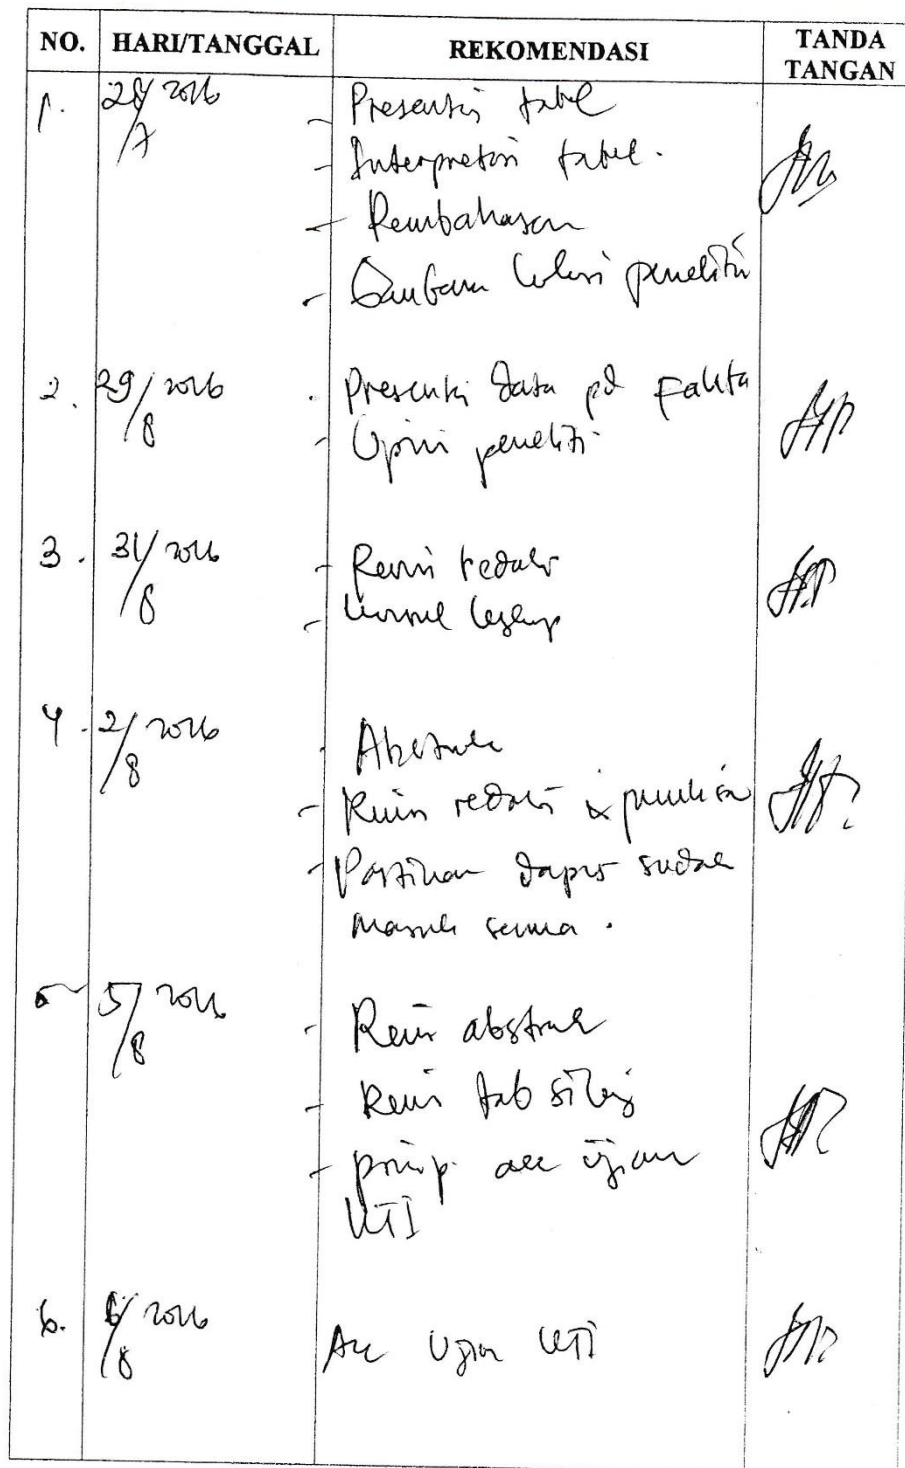 NO. HARI/TANGGAL REKOMENDASI TANDA TANGAN
1. 28/7 2016 - Presentasi tabel
- Interpretasi tabel.
- Pembahasan
- Gambaran lokasi penelitian
2. 29/8 2016 - Presentasi data pd Fakta
- Opini peneliti
3. 31/8 2016 - Revisi redaksi
-
4. 2/8 2016 - Abstrak
- Revisi redaksi &
- Pastikan dapus sudah
masuk semua.
5 5/8 2016 - Revisi abstrak
- Revisi tab silang
- prinsip acc ujian
KTI
6. 6/8 2016 Acc Ujian KTI